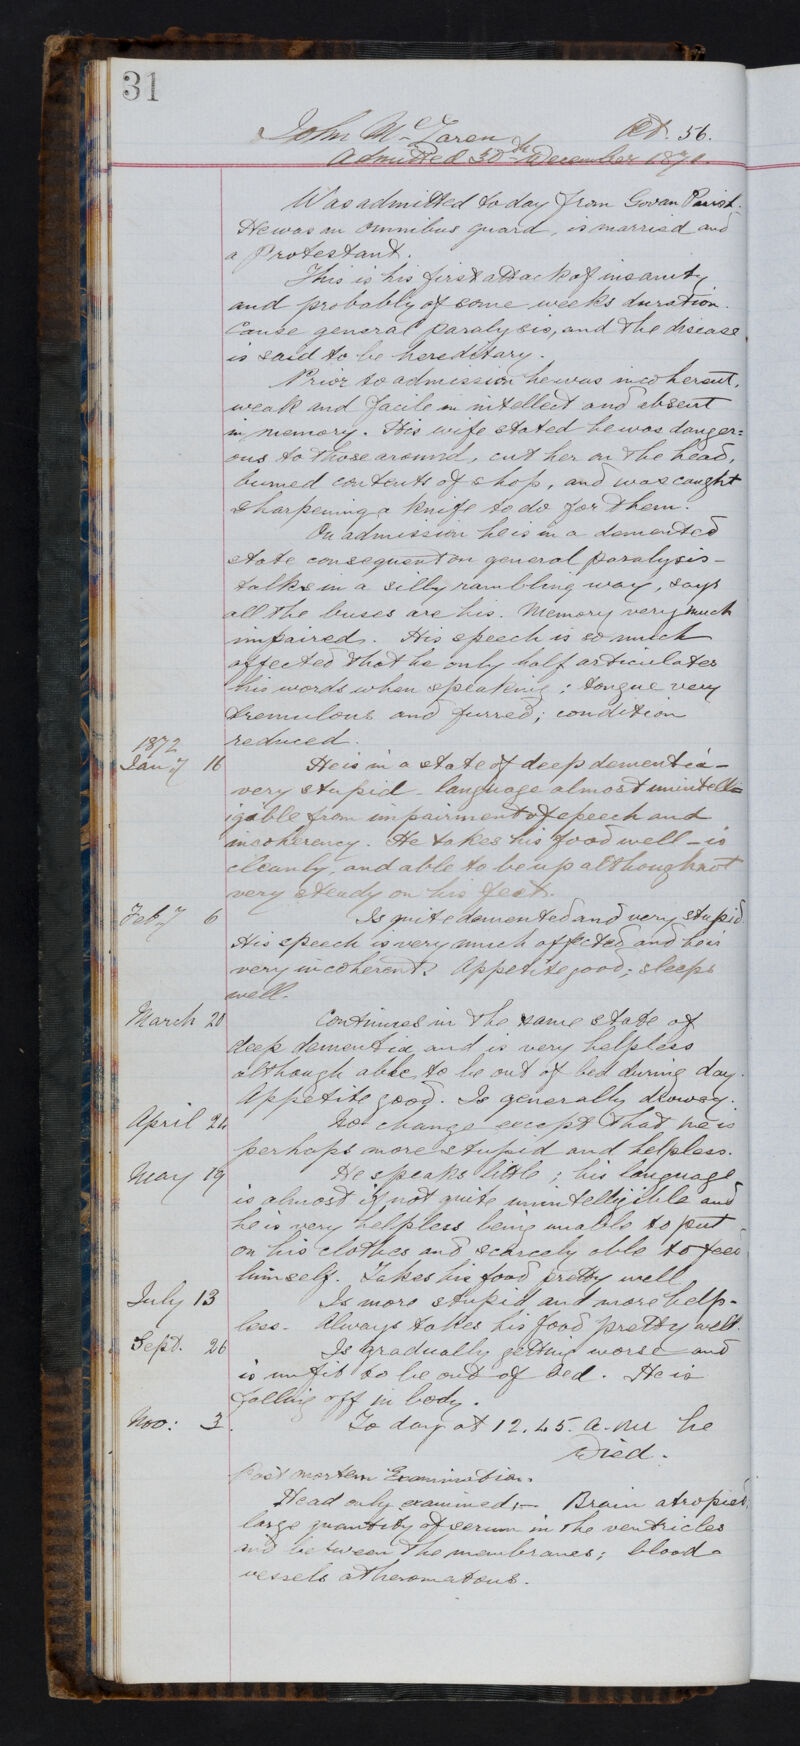 31
John McLaren Aet. 56.
Admitted 30th December 1871.
Was admitted to day from Govan Parish.
He was an omnibus guard, is married and
a Protestant.
This is his first attack of insanity
and probably of some weeks duration.
Cause general paralysis, and the disease
is said to be hereditary.
Prior to admission he was incoherent,
weak and facile in intellect and absent
in memory. His wife stated he was danger=
ous to those around, cut her on the head,
burned contents of shop, and was caught
sharpening a knife to do for them.
On admission he is in a demented
state consequent on general paralysis –
talks in a silly rambling way, says
all the buses are his. Memory very much
impaired. His speech is so much
affected that he only half articulates
his words when speaking; tongue very
tremulous and furred; condition
reduced.
1872
Jany 16 He is in a state of deep dementia –
very stupid – language almost unintelli=
igable from impairment of speech and
incoherency. He takes his food well – is
cleanly, and able to be up although not
very steady on his feet.
Feby 6 Is quite demented and very stupid.
His speech is very much affected and he is
very incoherent. Appetite good; sleeps
well.
March 20 Continues in the same state of
deep dementia and is very helpless
although able to be out of bed during day.
Appetite good. Is generally drowsy.
April 24 No change except that he is
perhaps more stupid and helpless.
May 19 He speaks little; his language
is almost if not quite unintelligible and
he is very helpless being unable to put
on his clothes and scarcely able to feed
himself. Takes his food pretty well
July 13 Is more stupid and more help-
less. Always takes his food pretty well.
Sept. 26 Is gradually getting worse and
is unfit to be out of bed. He is
falling off in body.
Nov: 3. To day at 12.45. a.m he
Died.
Post mortem Examination.
Head only examined; – Brain atropied,
large quantity of serum in the ventricles
and between the membranes; blood-
vessels atheromatous.